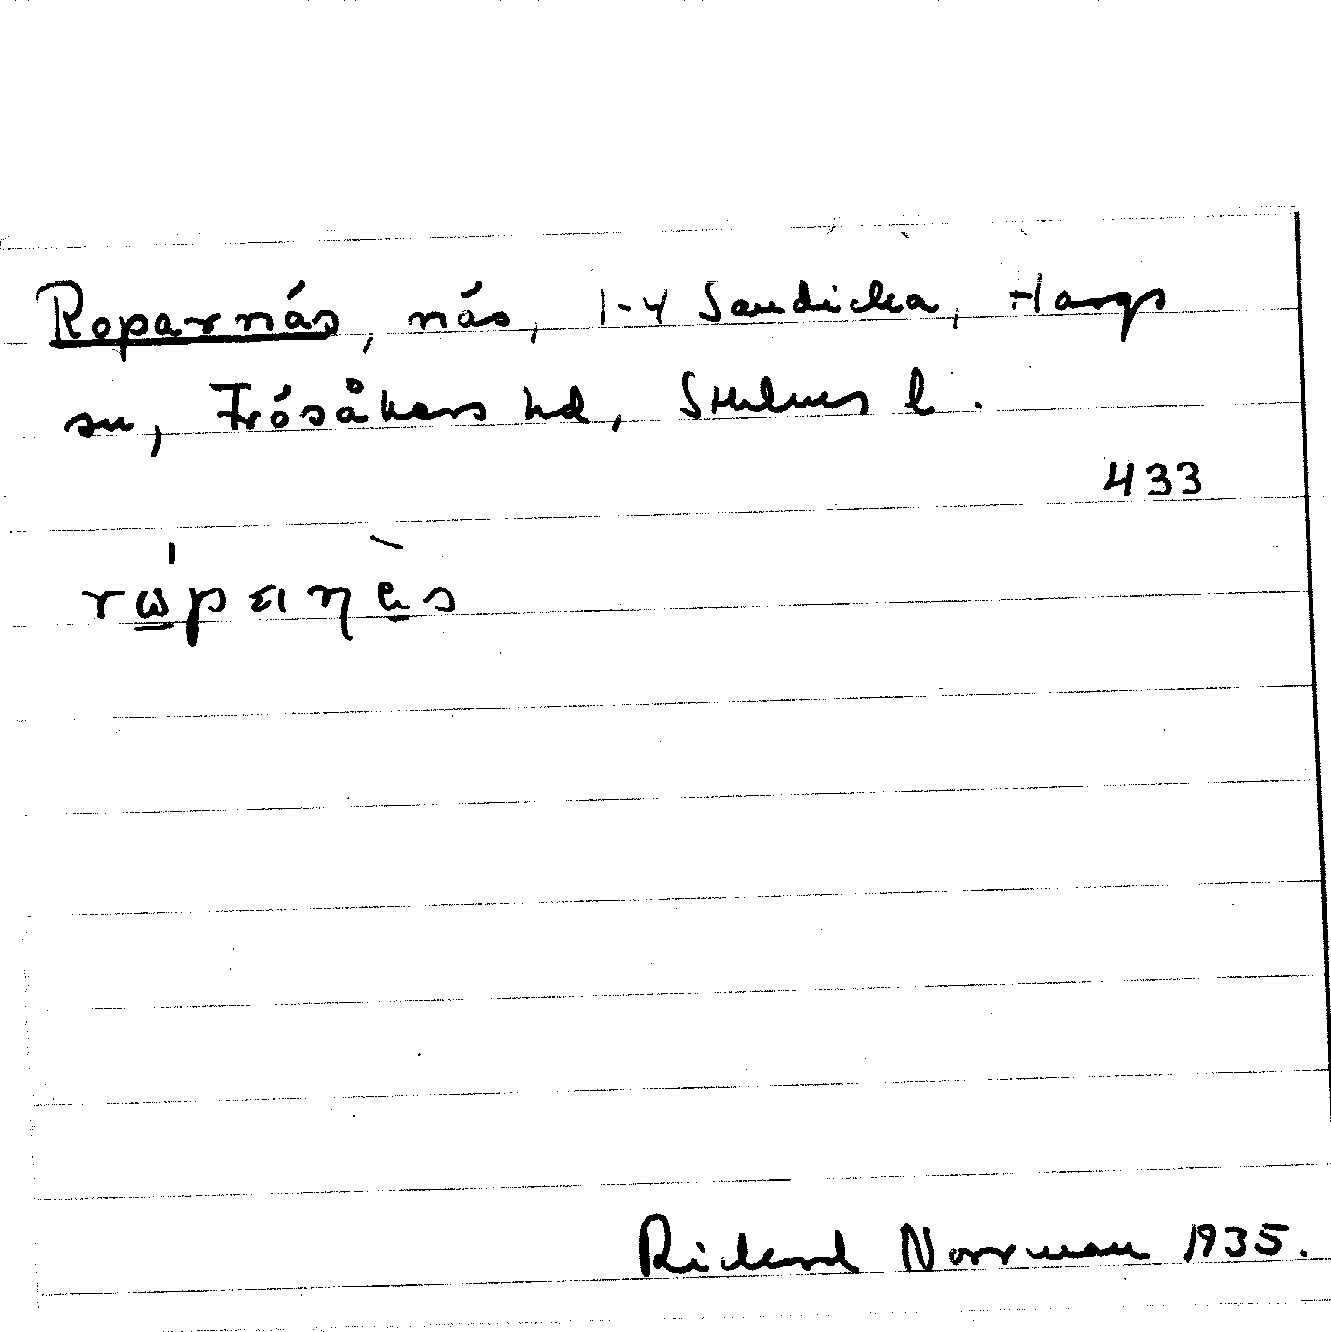 Roparnäs, näs, 1-4 Sandicka, Hargs
sn, Frösåkers hd, Sthlms l.
433
Rickard Norrman 1935.